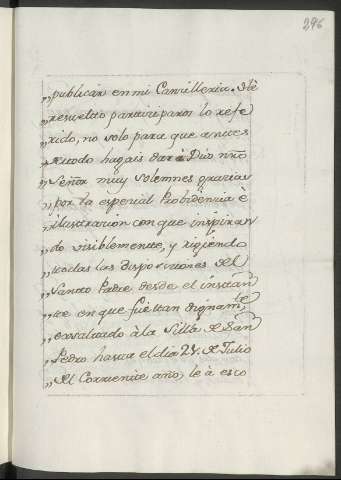 296
„publicar en mi Cancilleria. Hè
„resuelto participaros lo refe
„rido, no solo para que antes
„de todo hagais dar à Dios nr̃o
„Señor muy solemnes gracias
„por la especial Probidencia è
„illustracion con que inspiran
„do visiblemente, y rigiendo
„todas las disposiciones del
„Santo Padre desde el instan
„te en que fuè tan dignamte
„exsaltado à la Silla de San
„Pedro hasta el dia 21. de Julio
„del Corriente año, le à esco